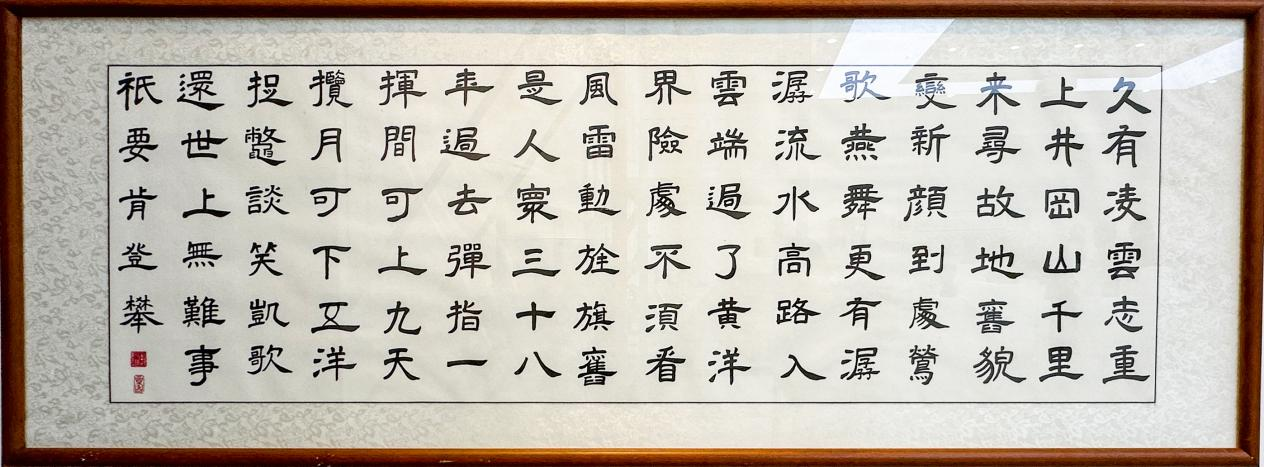 久有凌雲志重
上井岡山千里
来尋故地舊貌
變新顔到處鶯
歌燕舞更有潺
潺流水高路入
雲端過了黄洋
界險處不須看
風雷動旌旗舊
是人寰三十八
年過去彈指一
揮間可上九天
攬月可下五洋
捉鼈談笑凱歌
還世上無難事
祇要肯登攀